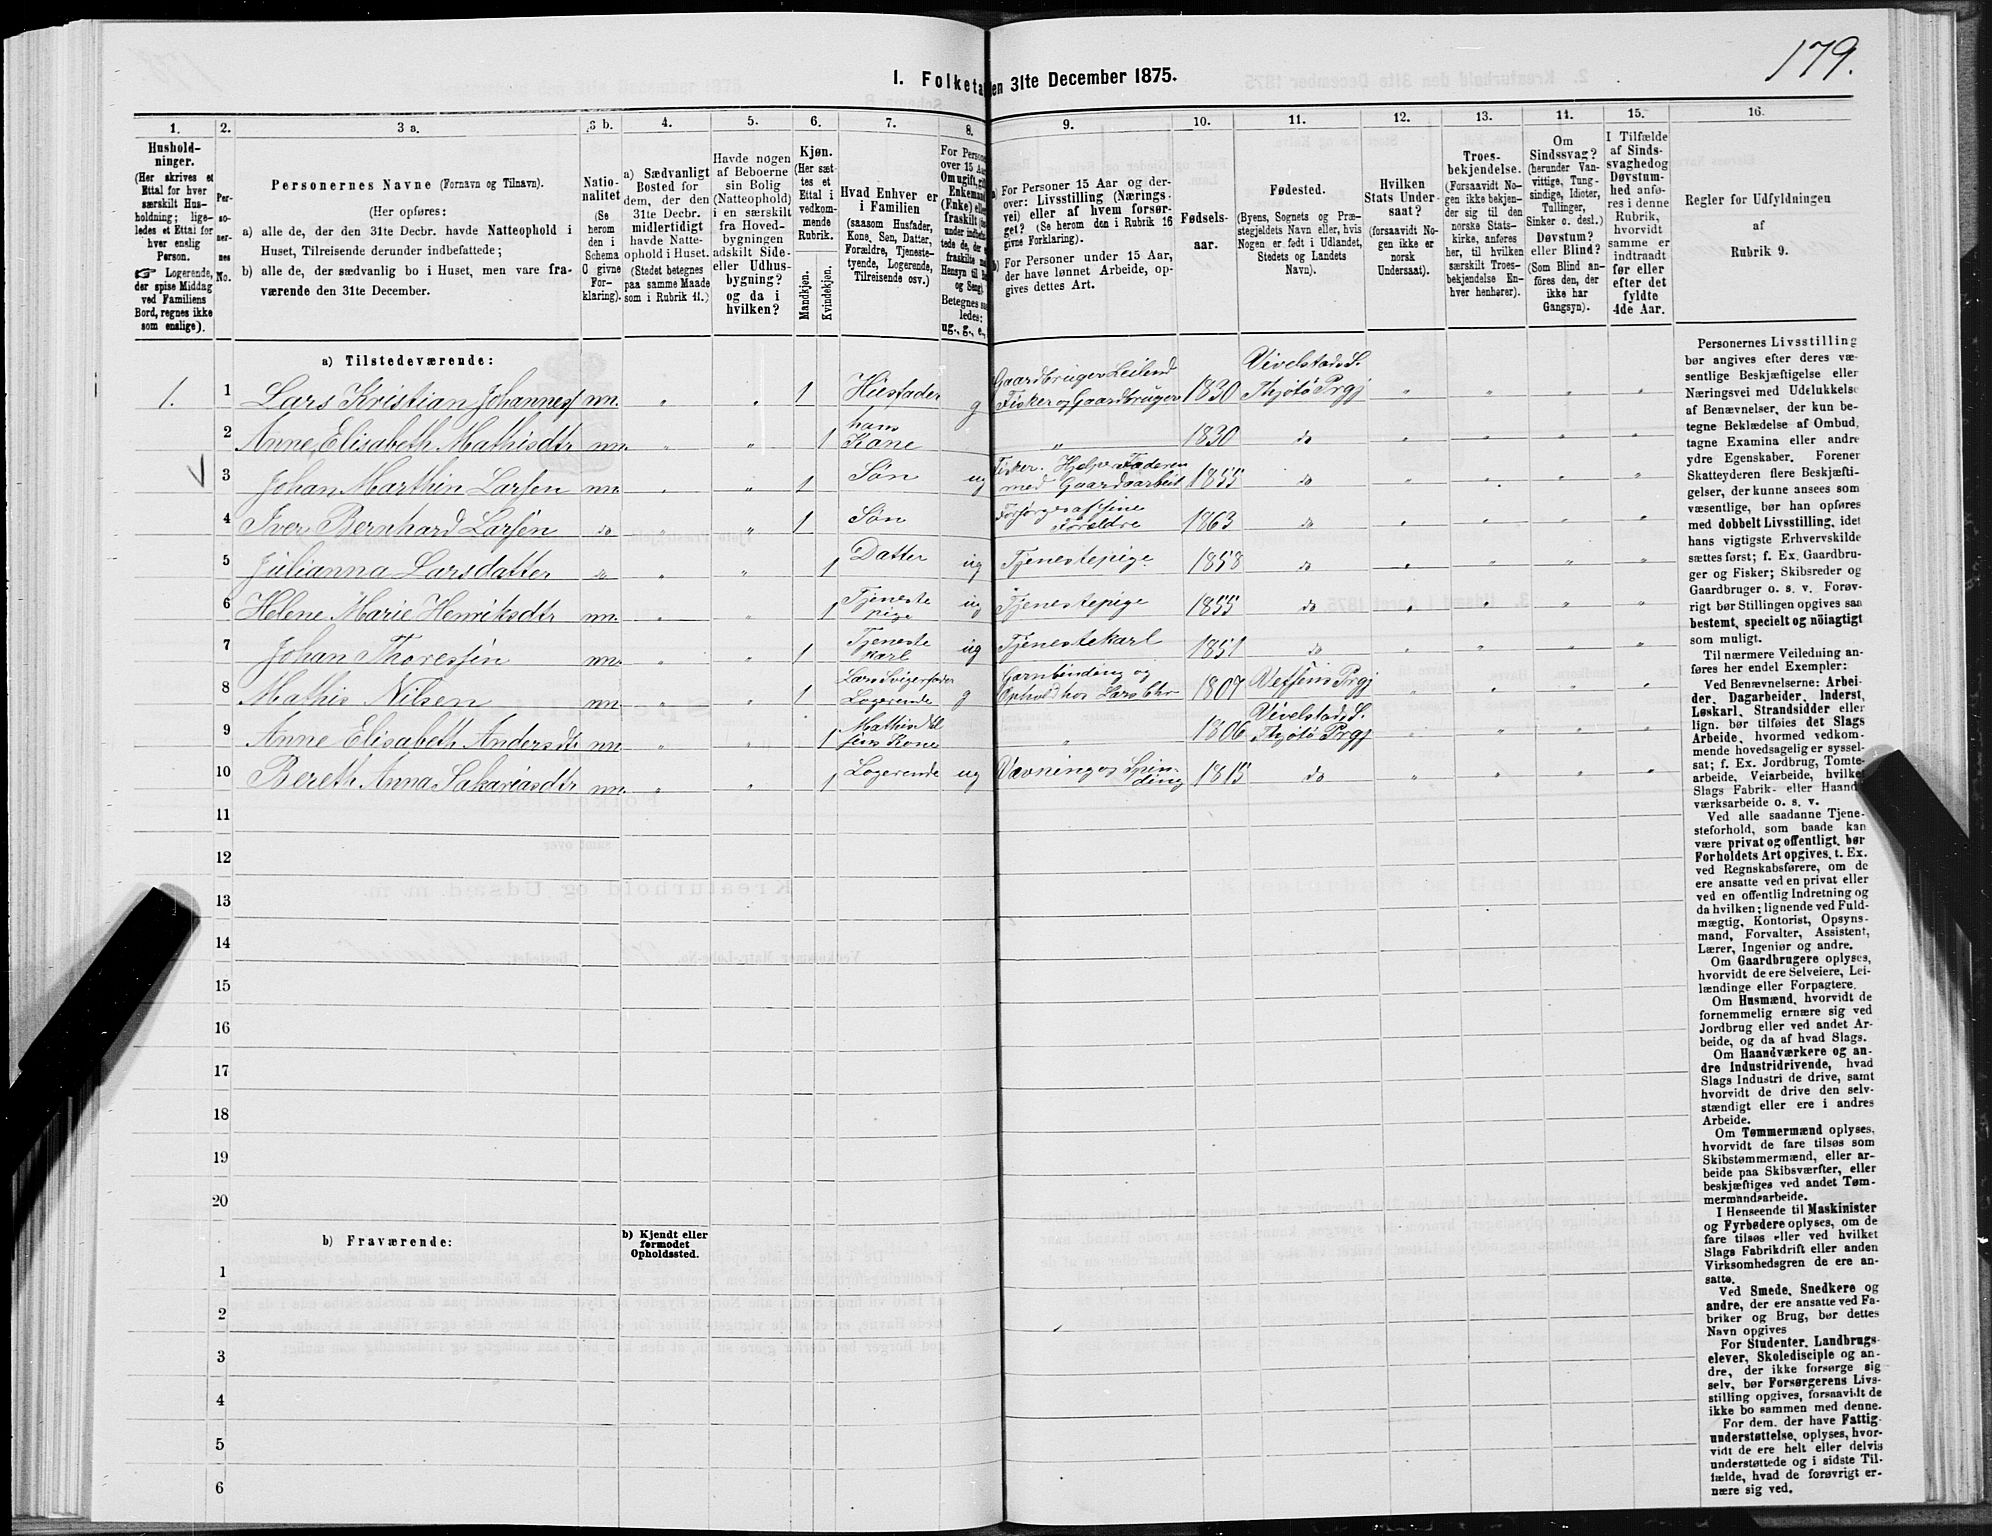 179.
1. Folketæ
en 31te December 1875.
1.
2.
3 a.
3 b.
4.
5.
6.
7.
8.
9.
10.
11.
12.
13.
14.
15.
16.
Hushold-
ninger.
(Her skrives et
Ettal for hver
særskilt Hus-
holdning; lige-
ledes et Ettal for
hver enslig
Person.
☞ Logerende,
der spise Middag
ved Familiens
Bord, regnes ikke
som enslige).
Per-
so-
ner-
nes
No.
Personernes Navne (Fornavn og Tilnavn).
(Her opføres:
a) alle de, der den 31te Decbr. havde Natteophold i
Huset, Tilreisende derunder indbefattede;
b) alle de, der sædvanlig bo i Huset, men vare fra-
værende den 31te December.
Natio-
nalitet
(Se
herom
den i
Schema
O givne
For-
klaring).
a) Sædvanligt
Bosted for
dem, der den
31te Decbr.
midlertidigt
havde Natte-
ophold i Huset.
(Stedet betegnes
paa samme Maade
som i Rubrik 11.)
Havde nogen
af Beboerne
sin Bolig
(Natteophold)
i en særskilt
fra Hoved-
bygningen
adskilt Side-
eller Udhus-
bygning?
og da i
hvilken?
Kjøn.
(Her sæt-
tes et
Ettal i
vedkom-
mende
Rubrik.
Mandkjøn.
Kvindekjøn.
Hvad Enhver er
i Familien
(saasom Husfader,
Kone, Søn, Datter,
Forældre, Tjeneste-
tyende, Logerende,
Tilreisende osv.)
For Person
over 15 Aar
Om ugift, gift
Enkemand
(Enke) elle
fraskilt (se
under indbe
tede de, der
fraskilte m
Hensyn til B
og Seng)
Betegnes sa
ledes:
ug., g., e.,
a) For Personer 15 Aar og der-
over: Livsstilling (Nærings-
vei) eller af hvem forsør-
get? (Se herom den i Rubrik 16
givne Forklaring).
b) For Personer under 15 Aar,
der have lønnet Arbeide, op-
gives dettes Art.
Fødsels-
aar.
Fødested.
(Byens, Sognets og Præ-
stegjeldets Navn eller, hvis
Nogen er født i Udlandet,
Stedets og Landets
Navn).
Hvilken
Stats Under-
saat?
(forsaavidt No-
gen ikke er
norsk
Undersaat).
Troes-
bekjendelse.
(Forsaavidt No-
gen ikke bekjen-
der sig til den
norske Stats-
kirke, anføres
her, til hvilken
særskilt Troes-
bekjendelse En-
hver henhører).
Om
Sindssvag?
(herunder Van-
vittige, Tung-
sindige, Idioter,
Tullinger,
Sinker o. desl.)
Døvstum?
eller Blind?
(Som Blind an-
føres den, der
ikke har
Gangsyn).
I Tilfælde
af Sinds-
svaghed og
Døvstum-
hed anfø-
res i denne
Rubrik,
hvorvidt
samme er
indtraadt
før eller
efter det
fyldte
4de Aar.
Regler for Udfyldningen
af
Rubrik 9.
a) Tilstedeværende:
1. 1 Lars Kristian Johannes nn. " " 1 Husfader g Gaardbruger Leilend Fisker og Gaardbruger 1830 Vivelstads S. Thjøtø Prgj " " " "
2 Anne Elisabeth Mathisdtr nn. " " 1 hans Kone " 1830 do " " " "
3 Johan Marthin Larsen nn. " " 1 Søn ug Fisker. Hjelper Faderen med Gaardsarbeit 1855 do " " " "
4 Iver Bernhard Larsen do " " 1 Søn Forsørges af sine Forældre 1863 do " " " "
5 Julianna Larsdatter do " " 1 Datter ug Tjenestepige 1858 do " " " "
6 Helene Marie Henriksdtr nn. " " 1 Tjeneste pige ug Tjenestepige 1855 do " " " "
7 Johan Thoressen nn. " " 1 Tjeneste karl ug Tjenestekarl 1851 do " " " "
8 Mathis Nilsen nn. " " 1 Lars Svigerfader Logerende g Garnbinding og Ophold hos Lars Chr 1807 Vefsens Prgj " " " "
9 Anne Elisabeth Andersdtr nn. " " 1 Mathis Nil sens Kone " 1806 Vivelstads S. Thjøtø Prgj " " " "
10 Bereth Anna Sakariasdtr nn. " " 1 Logerende ug Vævning og Spin- ding 1815 do " " " "
11
12
13
14
15
16
17
18
19
20
b) Fraværende:
b) Kjendt eller
formodet
Opholdssted.
1
2
3
4
5
6
Personernes Livsstilling
bør angives efter deres væ-
sentlige Beskjæftigelse eller
Næringsvei med Udelukkelse
af Benævnelser, der kun be-
tegne Beklædelse af Ombud,
tagne Examina eller andre
ydre Egenskaber. Forener
Skatteyderen flere Beskjæfti-
gelser, der kunne ansees som
væsentlige, bør han opføres
med dobbelt Livsstilling, idet
hans vigtigste Erhvervskilde
sættes først; f. Ex. Gaardbru-
ger og Fisker; Skibsreder og
Gaardbruger o. s. v. Forøv-
rigt bør Stillingen opgives saa
bestemt, specielt og nöiagtigt
som muligt.
Til nærmere Veiledning an-
føres her endel Exempler:
Ved Benævnelserne: Arbei-
der, Dagarbeider, Inderst,
Løskarl, Strandsidder eller
lign. bør tilføies det Slags
Arbeide, hvormed vedkom-
mende hovedsagelig er syssel-
sat; f. Ex. Jordbrug, Tomte-
arbeide, Veiarbeide, hvilket
Slags Fabrik- eller Haand-
værksarbeide o. s. v.
Ved alle saadanne Tjene-
steforhold, som baade kan
være privat og offentligt, bør
Forholdets Art opgives, t. Ex.
ved Regnskabsførere, om de
ere ansatte ved en privat eller
ved en offentlig Indretning og
da hvilken; lignende ved Fuld-
mægtig, Kontorist, Opsyns-
mand, Forvalter, Assistent,
Lærer, Ingeniør og andre.
Om Gaardbrugere oplyses,
hvorvidt de ere Selveiere, Lei-
lændinge eller Forpagtere.
Om Husmænd, hvorvidt de
fornemmelig ernære sig ved
Jordbrug eller ved andet Ar-
beide, og da af hvad Slags.
Om Haandværkere og an-
dre Industridrivende, hvad
Slags Industri de drive, samt
hvorvidt de drive den selv-
stændigt eller ere i andres
Arbeide.
Om Tømmermænd oplyses,
hvorvidt de fare tilsøs som
Skibstømmermænd, eller ar-
beide paa Skibsværfter, eller
beskjæftiges ved andet Tøm-
mermandsarbeide.
I Henseende til Maskinister
og Fyrbødere oplyses, om de
fare tilsøs eller ved hvilket
Slags Fabrikdrift eller anden
Virksomhedsgren de ere an-
satte.
Ved Smede, Snedkere og
andre, der ere ansatte ved Fa-
briker og Brug, bør dettes
Navn opgives
For Studenter, Landbrugs-
elever, Skoledisciple og an-
dre, der ikke forsørge sig
selv, bør Forsørgerens Livs-
stilling opgives, forsaavidt de
ikke bo sammen med denne.
For dem, der have Fattig-
understøttelse, oplyses, hvor-
vidt de ere helt eller delvis
understøttede og i sidste Til-
fælde, hvad de forøvrigt er-
nære sig ved.